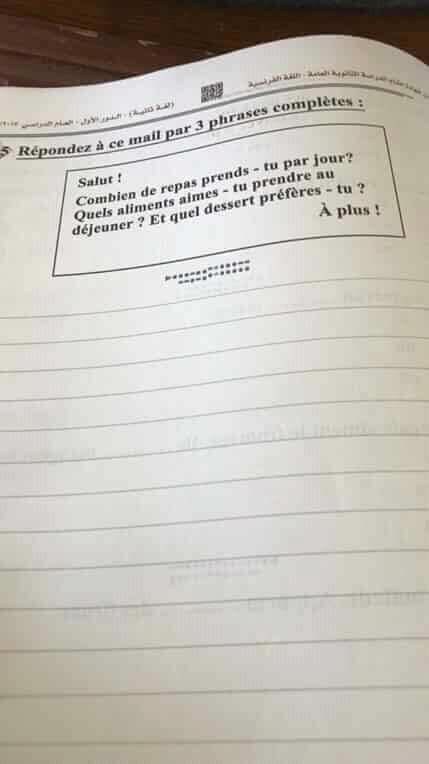 امتحان شهادة إتمام الدراسة الثانوية العامة - اللغة الفرنسية
(لغة ثانية) - الدور الأول - العام الدراسي
5 Répondez à ce mail par 3 phrases complètes :
Salut !
Combien de repas prends - tu par jour?
Quels aliments aimes - tu prendre au
déjeuner ? Et quel dessert préfères - tu ?
À plus !